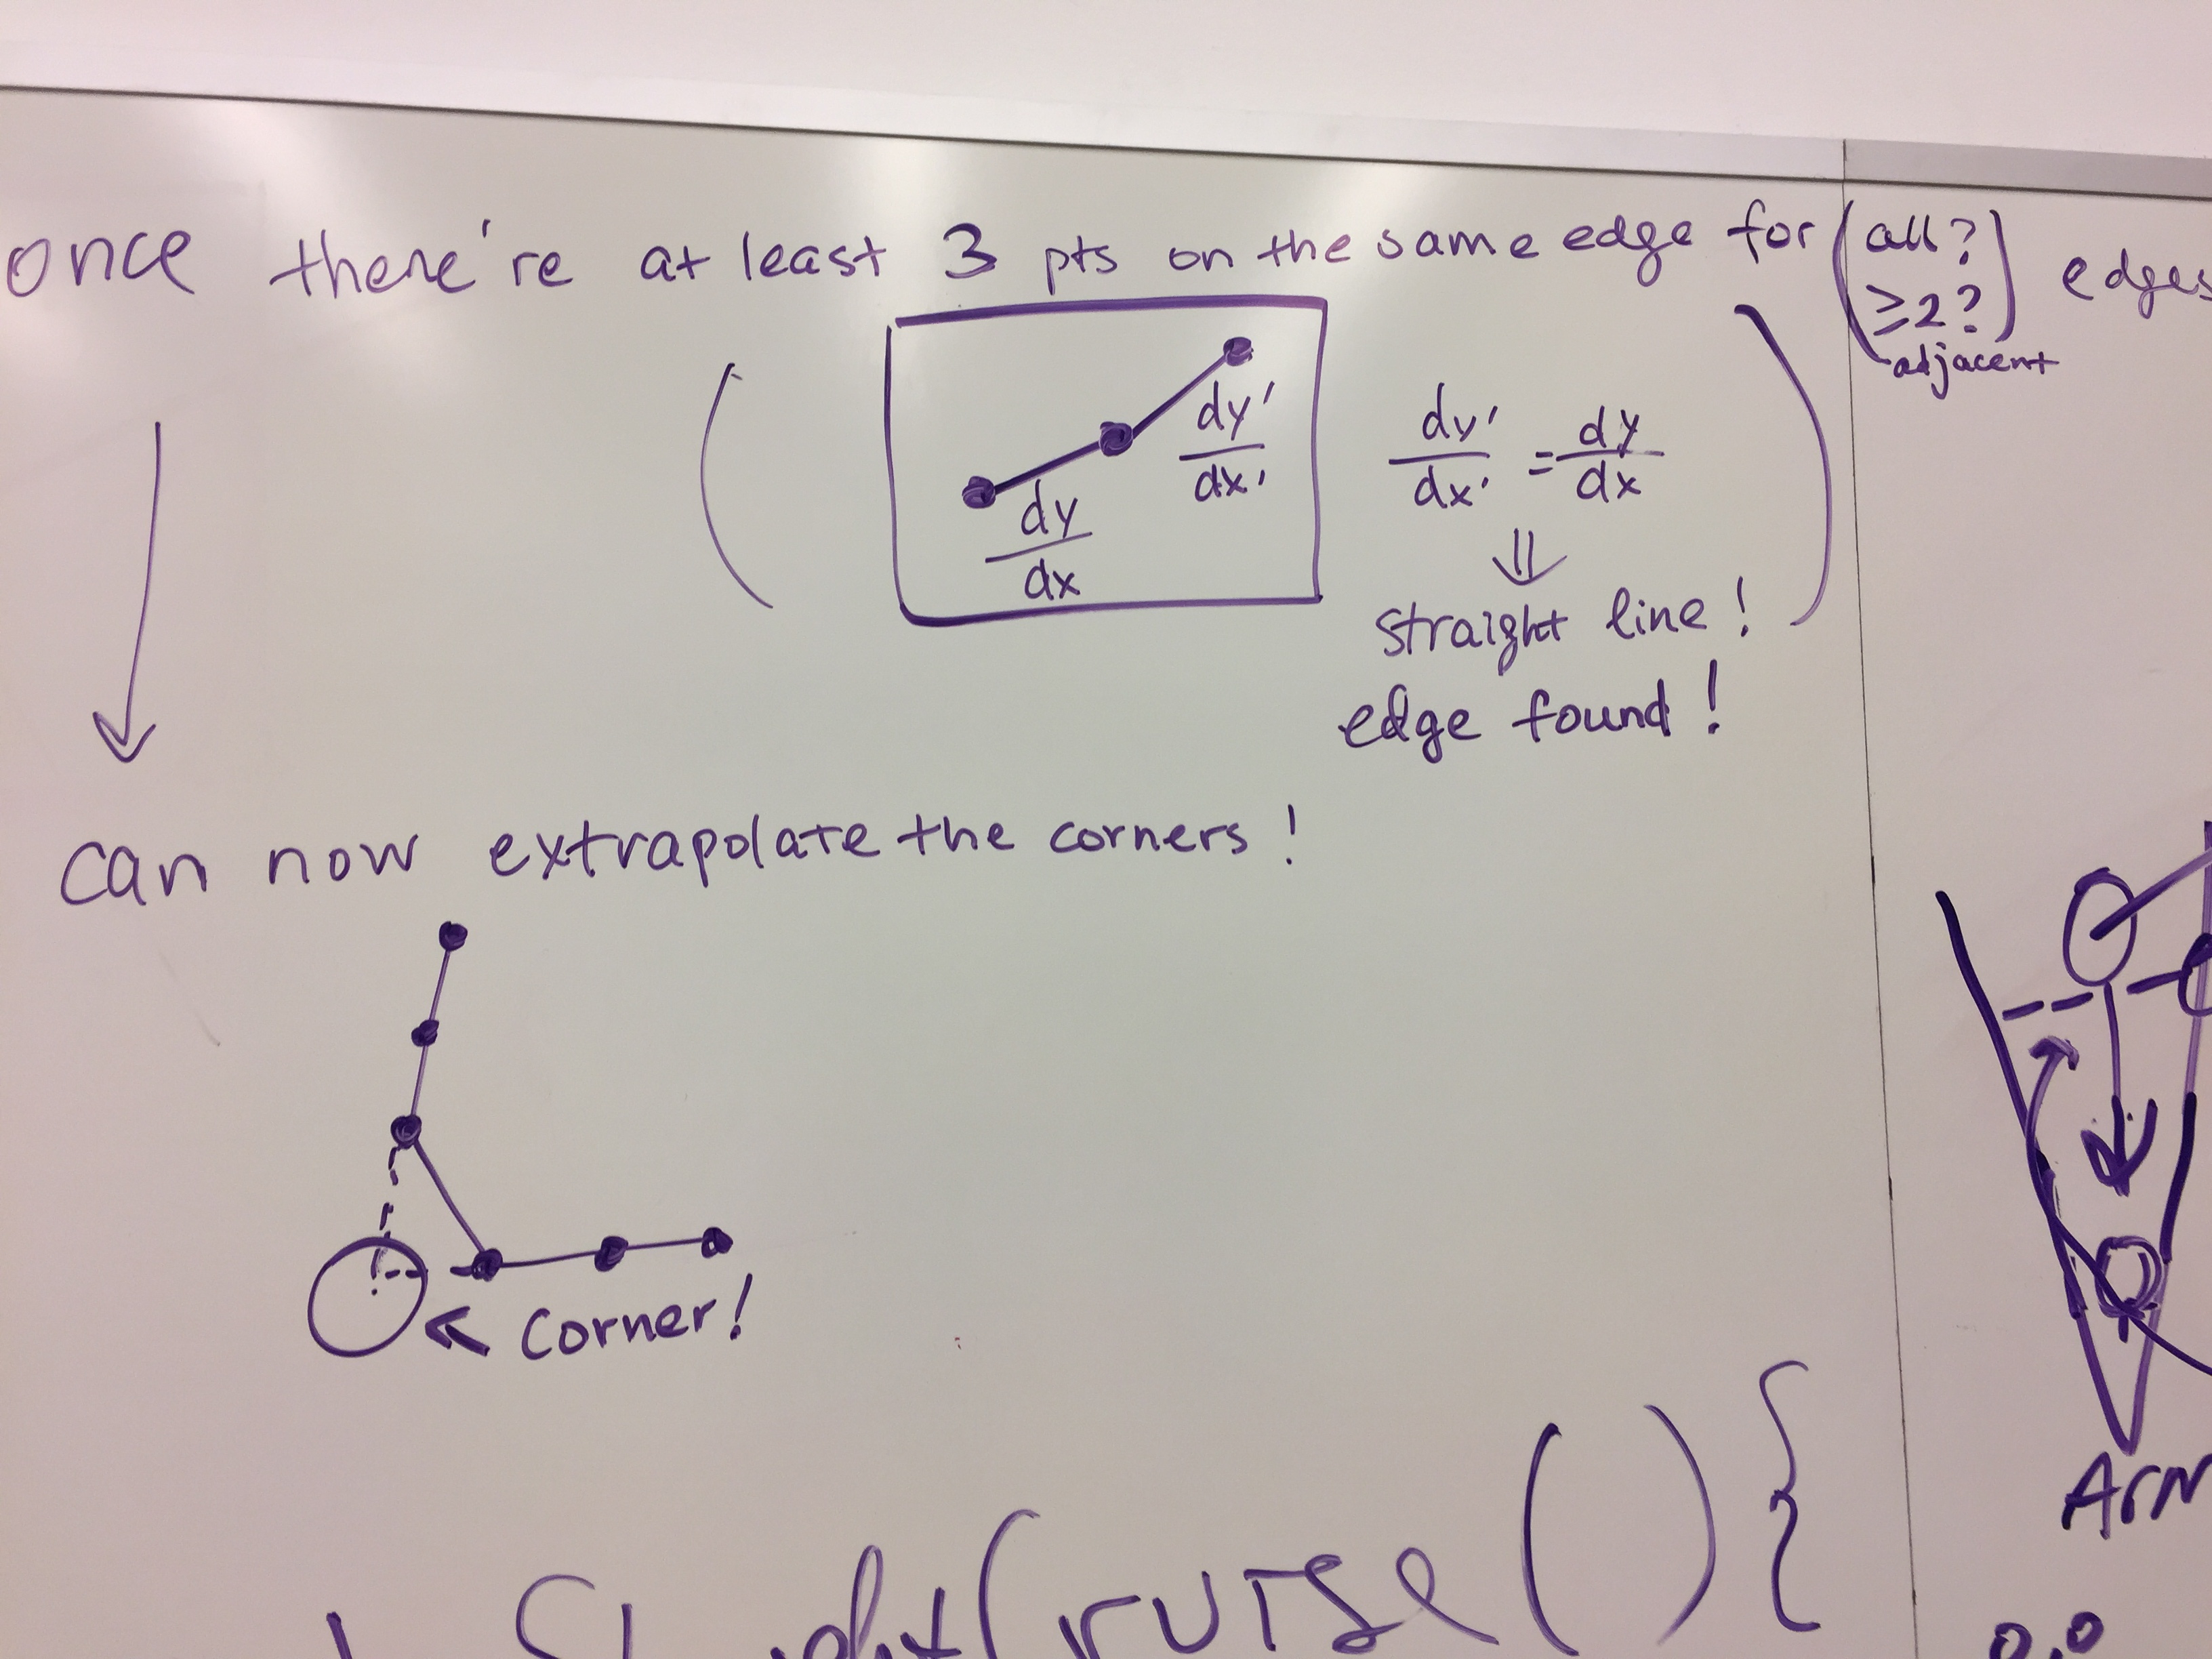 once there're at least 3 pts on the same edge for (all? ≥2? adjacent) edges
dy/dx
dy'/dx'
dy'/dx' = dy/dx
⇓
straight line!
edge found!
can now extrapolate the corners!
< corner!
() {
0.0